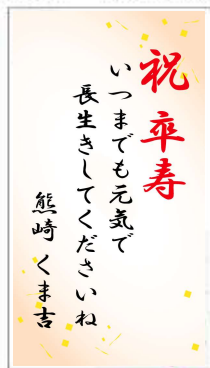 祝 卒寿
いつまでも元気で
長生きしてくださいね
熊崎 くま吉